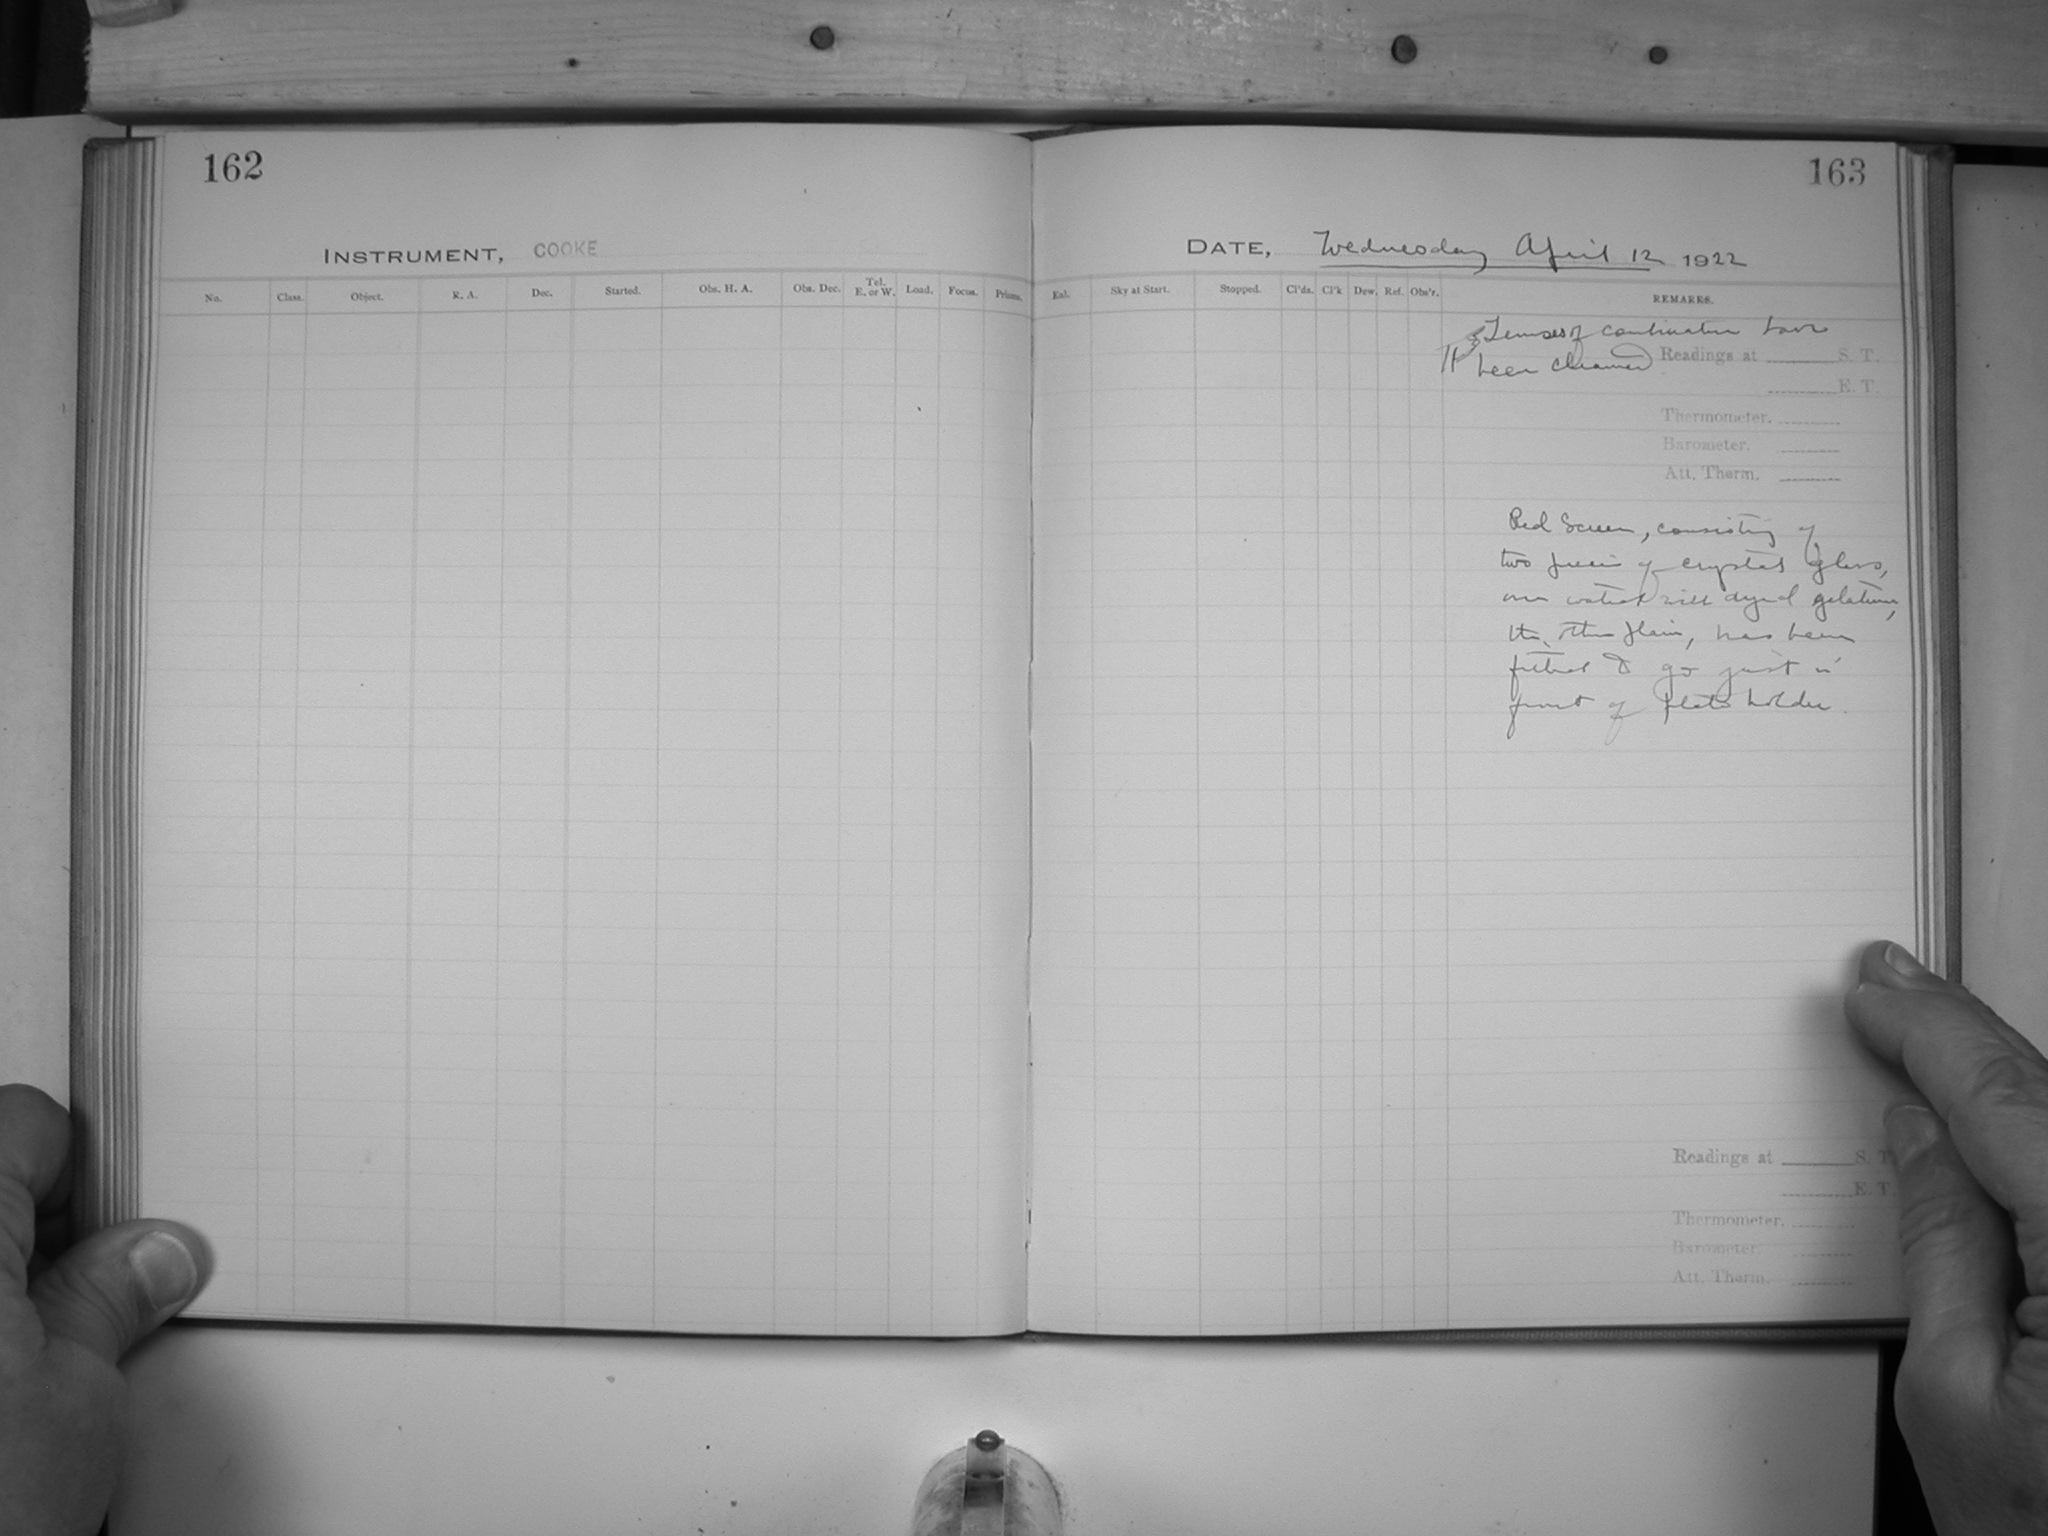 162
INSTRUMENT, COOKE
No. Class. Object. R. A. Dec. Started. Obs. H. A. Obs. Dec. Tel. E. or W. Load. Focus. Prisms.
163
DATE, Wednesday April 12 1922
Exl. Sky at Start. Stopped. Cl'ds. Cl'k Dew. Ref. Obs'r. REMARKS.
Lenses of combination have
been cleaned
Readings at S. T.
E. T.
Thermometer.
Barometer.
Att. Therm.
Red Screen, consisting of
two pieces of crystal glass,
one coated with dyed gelatine,
the other plain, has been
fitted to go just in
front of plate holder.
Readings at S. T.
E. T.
Thermometer.
Barometer.
Att. Therm.